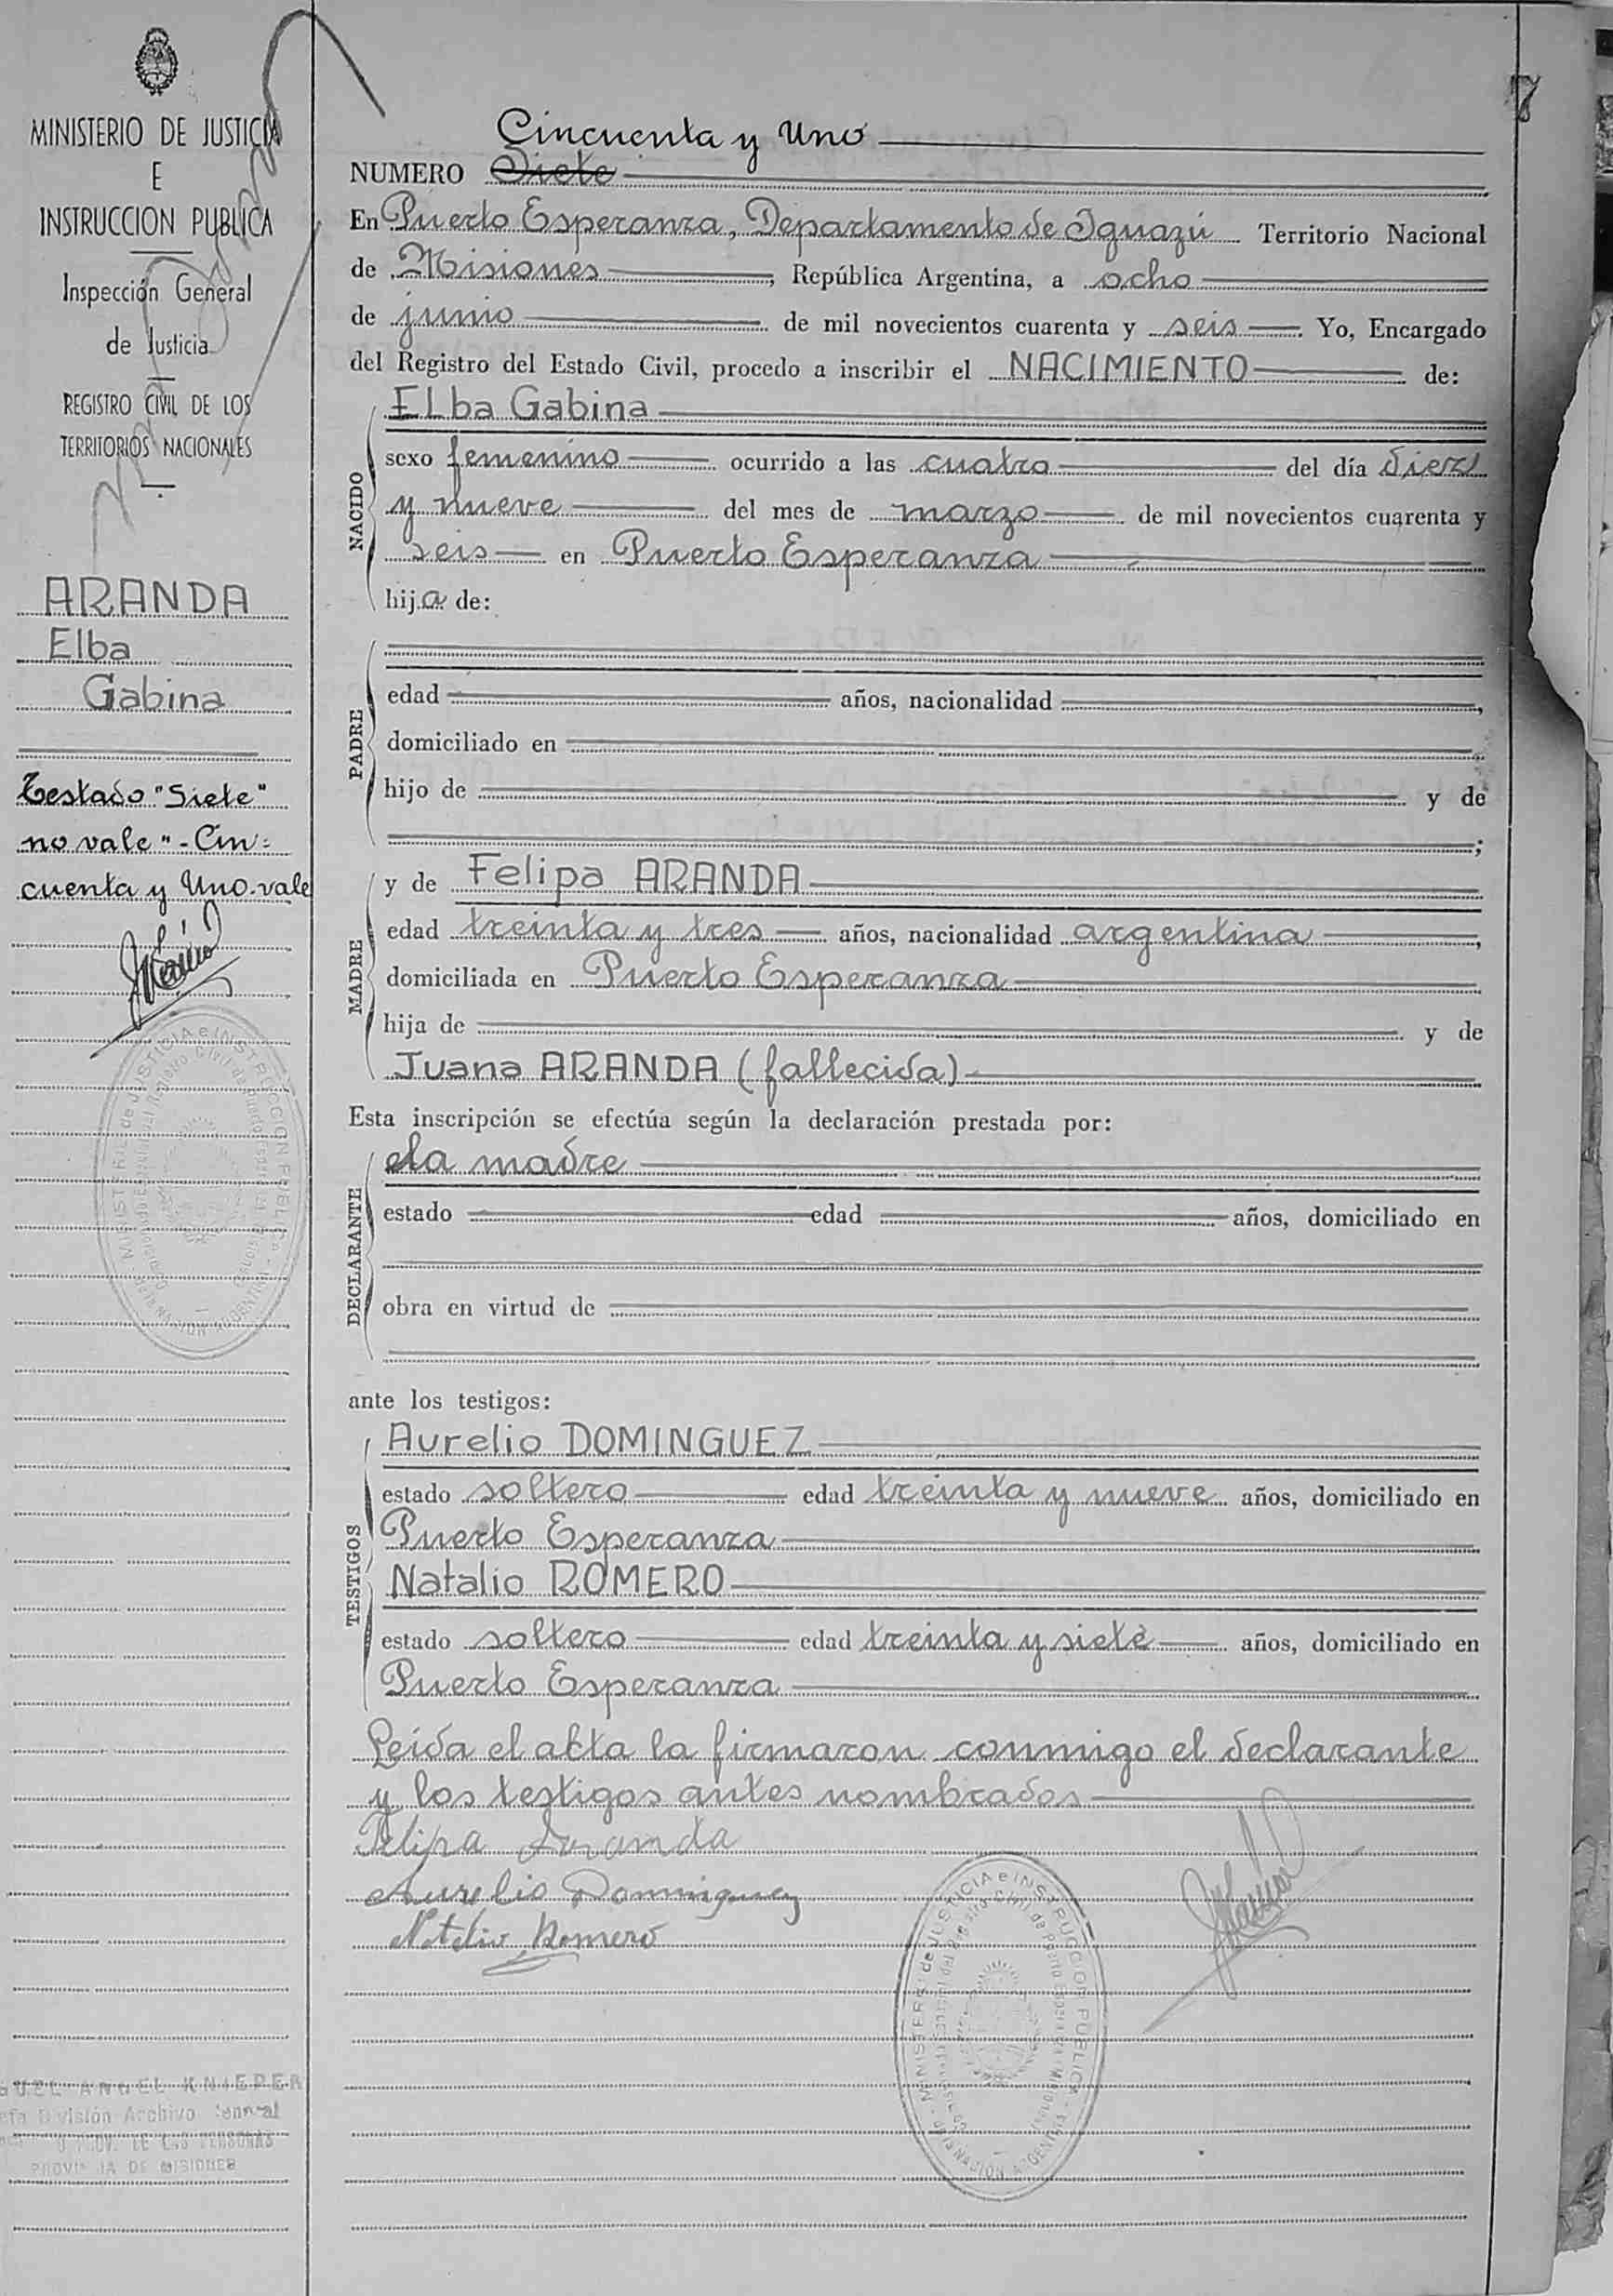 MINISTERIO DE JUSTICIA
E
INSTRUCCION PUBLICA
Inspección General
de Justicia
REGISTRO CIVIL DE LOS
TERRITORIOS NACIONALES
ARANDA
Elba
Gabina
Testado "Siete"
no vale "-Cin=
cuenta y Uno-vale
8
Cincuenta y Uno
NUMERO Siete
En Puerto Esperanza, Departamento de Iguazú Territorio Nacional
de Misiones, República Argentina, a ocho
de junio de mil novecientos cuarenta y seis. Yo, Encargado
del Registro del Estado Civil, procedo a inscribir el NACIMIENTO de:
NACIDO
Elba Gabina
sexo femenino ocurrido a las cuatro del día diez
y nueve del mes de marzo de mil novecientos cuarenta y
seis en Puerto Esperanza
hija de:
PADRE
edad años, nacionalidad ,
domiciliado en
hijo de y de
;
MADRE
y de Felipa ARANDA
edad treinta y tres años, nacionalidad argentina,
domiciliada en Puerto Esperanza
hija de y de
Juana ARANDA (fallecida)
Esta inscripción se efectúa según la declaración prestada por:
DECLARANTE
la madre
estado edad años, domiciliado en
obra en virtud de
ante los testigos:
TESTIGOS
Aurelio DOMINGUEZ
estado soltero edad treinta y nueve años, domiciliado en
Puerto Esperanza
Natalio ROMERO
estado soltero edad treinta y siete años, domiciliado en
Puerto Esperanza
Leída el acta la firmaron conmigo el declarante
y los testigos antes nombrados
Felipa Aranda
Aurelio Dominguez
Natalio Romero
MINISTERIO de JUSTICIA e INSTRUCCION PUBLICA
ANGEL KNIEPER
División Archivo General
PROV. DE LAS PERSONAS
PROVINCIA DE MISIONES